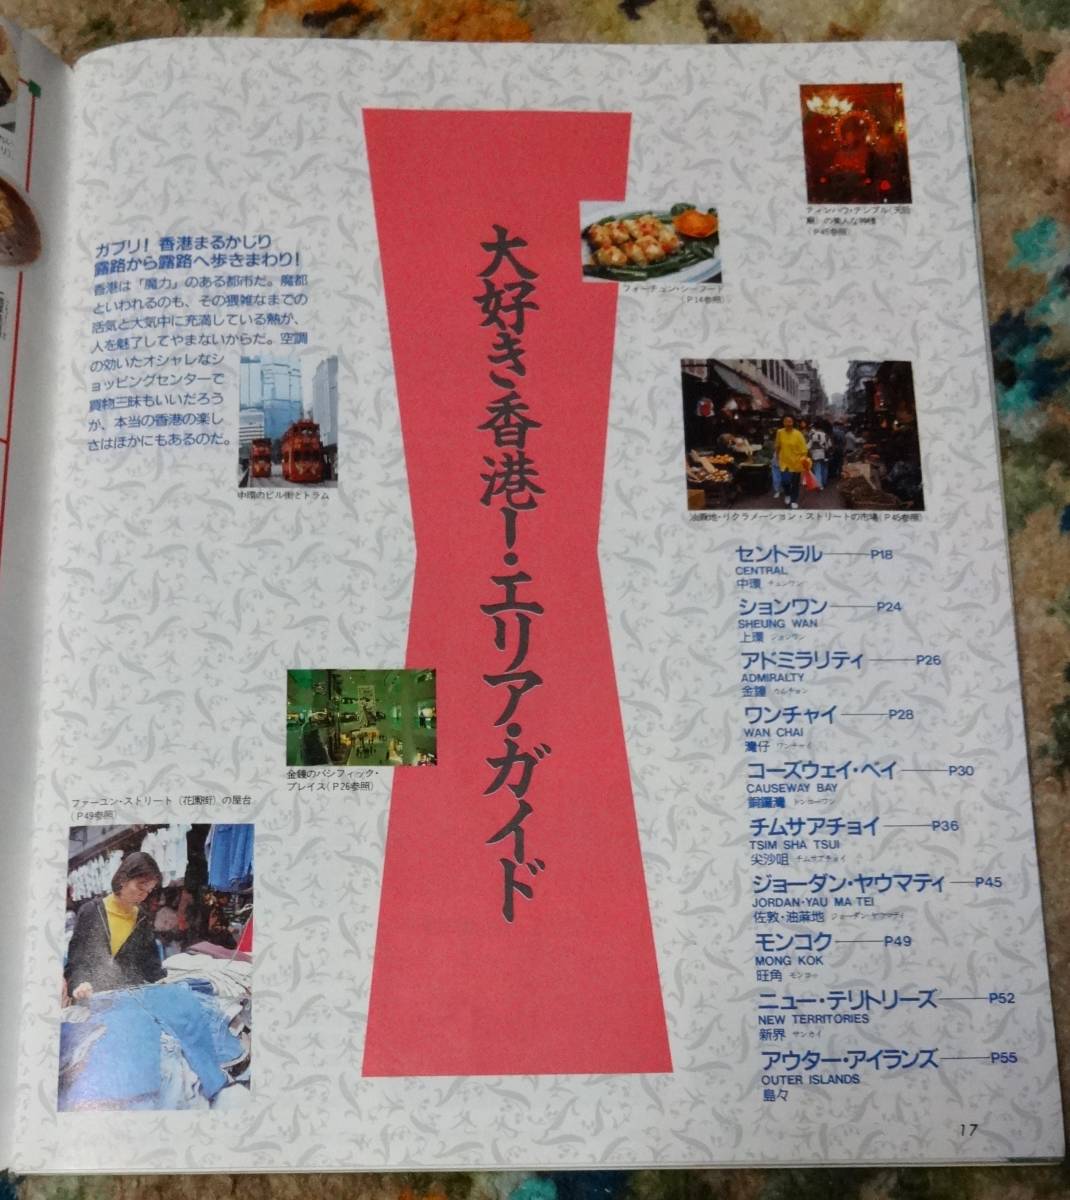 大好き香港ー・エリア・ガイド
ガブリ！香港まるかじり
露路から露路へ歩きまわり！
香港は「魔力」のある都市だ。魔都
といわれるのも、その猥雑なまでの
活気と大気中に充満している熱が、
人を魅了してやまないからだ。空調
の効いたオシャレなシ
ョッピングセンターで
買物三昧もいいだろう
が、本当の香港の楽し
さはほかにもあるのだ。
中環のビル街とトラム
フォーチュン・シーフード
（P14参照）
ティンハウ・テンプル（天后
廟）の
（P45参照）
油麻地・リクラメーション・ストリートの市場（P45参照）
金鐘のパシフィック・
プレイス（P26参照）
ファーユン・ストリート（花園街）の屋台
（P49参照）
セントラル——P18
CENTRAL
中環 チュンワン
ションワン——P24
SHEUNG WAN
上環 ションワン
アドミラリティ——P26
ADMIRALTY
金鐘 カムチョン
ワンチャイ——P28
WAN CHAI
灣仔 ワンチャイ
コーズウェイ・ベイ——P30
CAUSEWAY BAY
銅鑼灣 トンローワン
チムサアチョイ——P36
TSIM SHA TSUI
尖沙咀 チムサアチョイ
ジョーダン・ヤウマティ——P45
JORDAN・YAU MA TEI
佐敦・油蔴地 ジョーダン・ヤウマティ
モンコク——P49
MONG KOK
旺角 モンコッ
ニュー・テリトリーズ——P52
NEW TERRITORIES
新界 サンカイ
アウター・アイランズ——P55
OUTER ISLANDS
島々
17